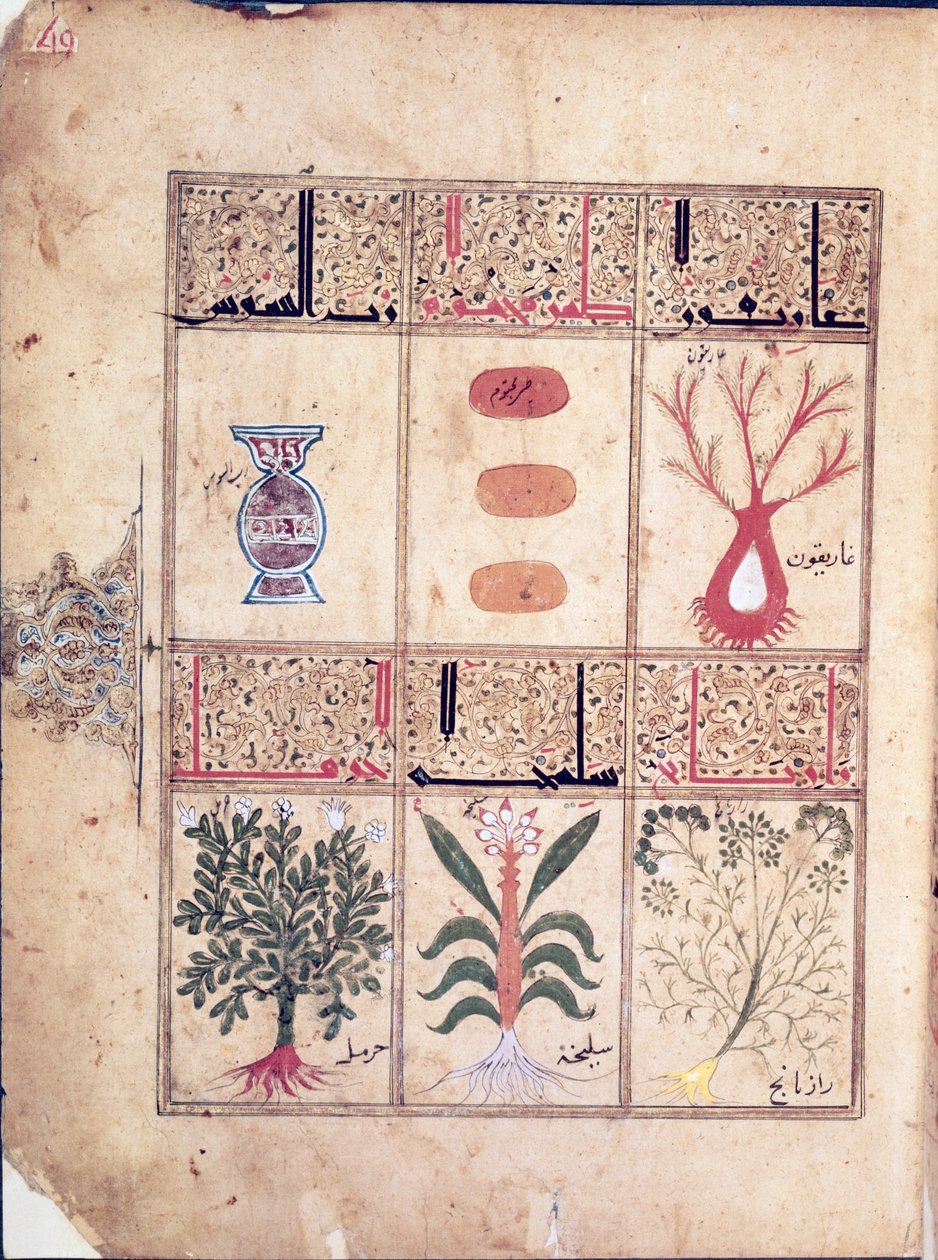 49
غاريقون
طين مختوم
رب السوس
غاريقون
طين مختوم
رب السوس
غاريقون
رازيانج
سليخه
حرمل
سليخه
حرمل
رازيانج
سليخة
حرمل